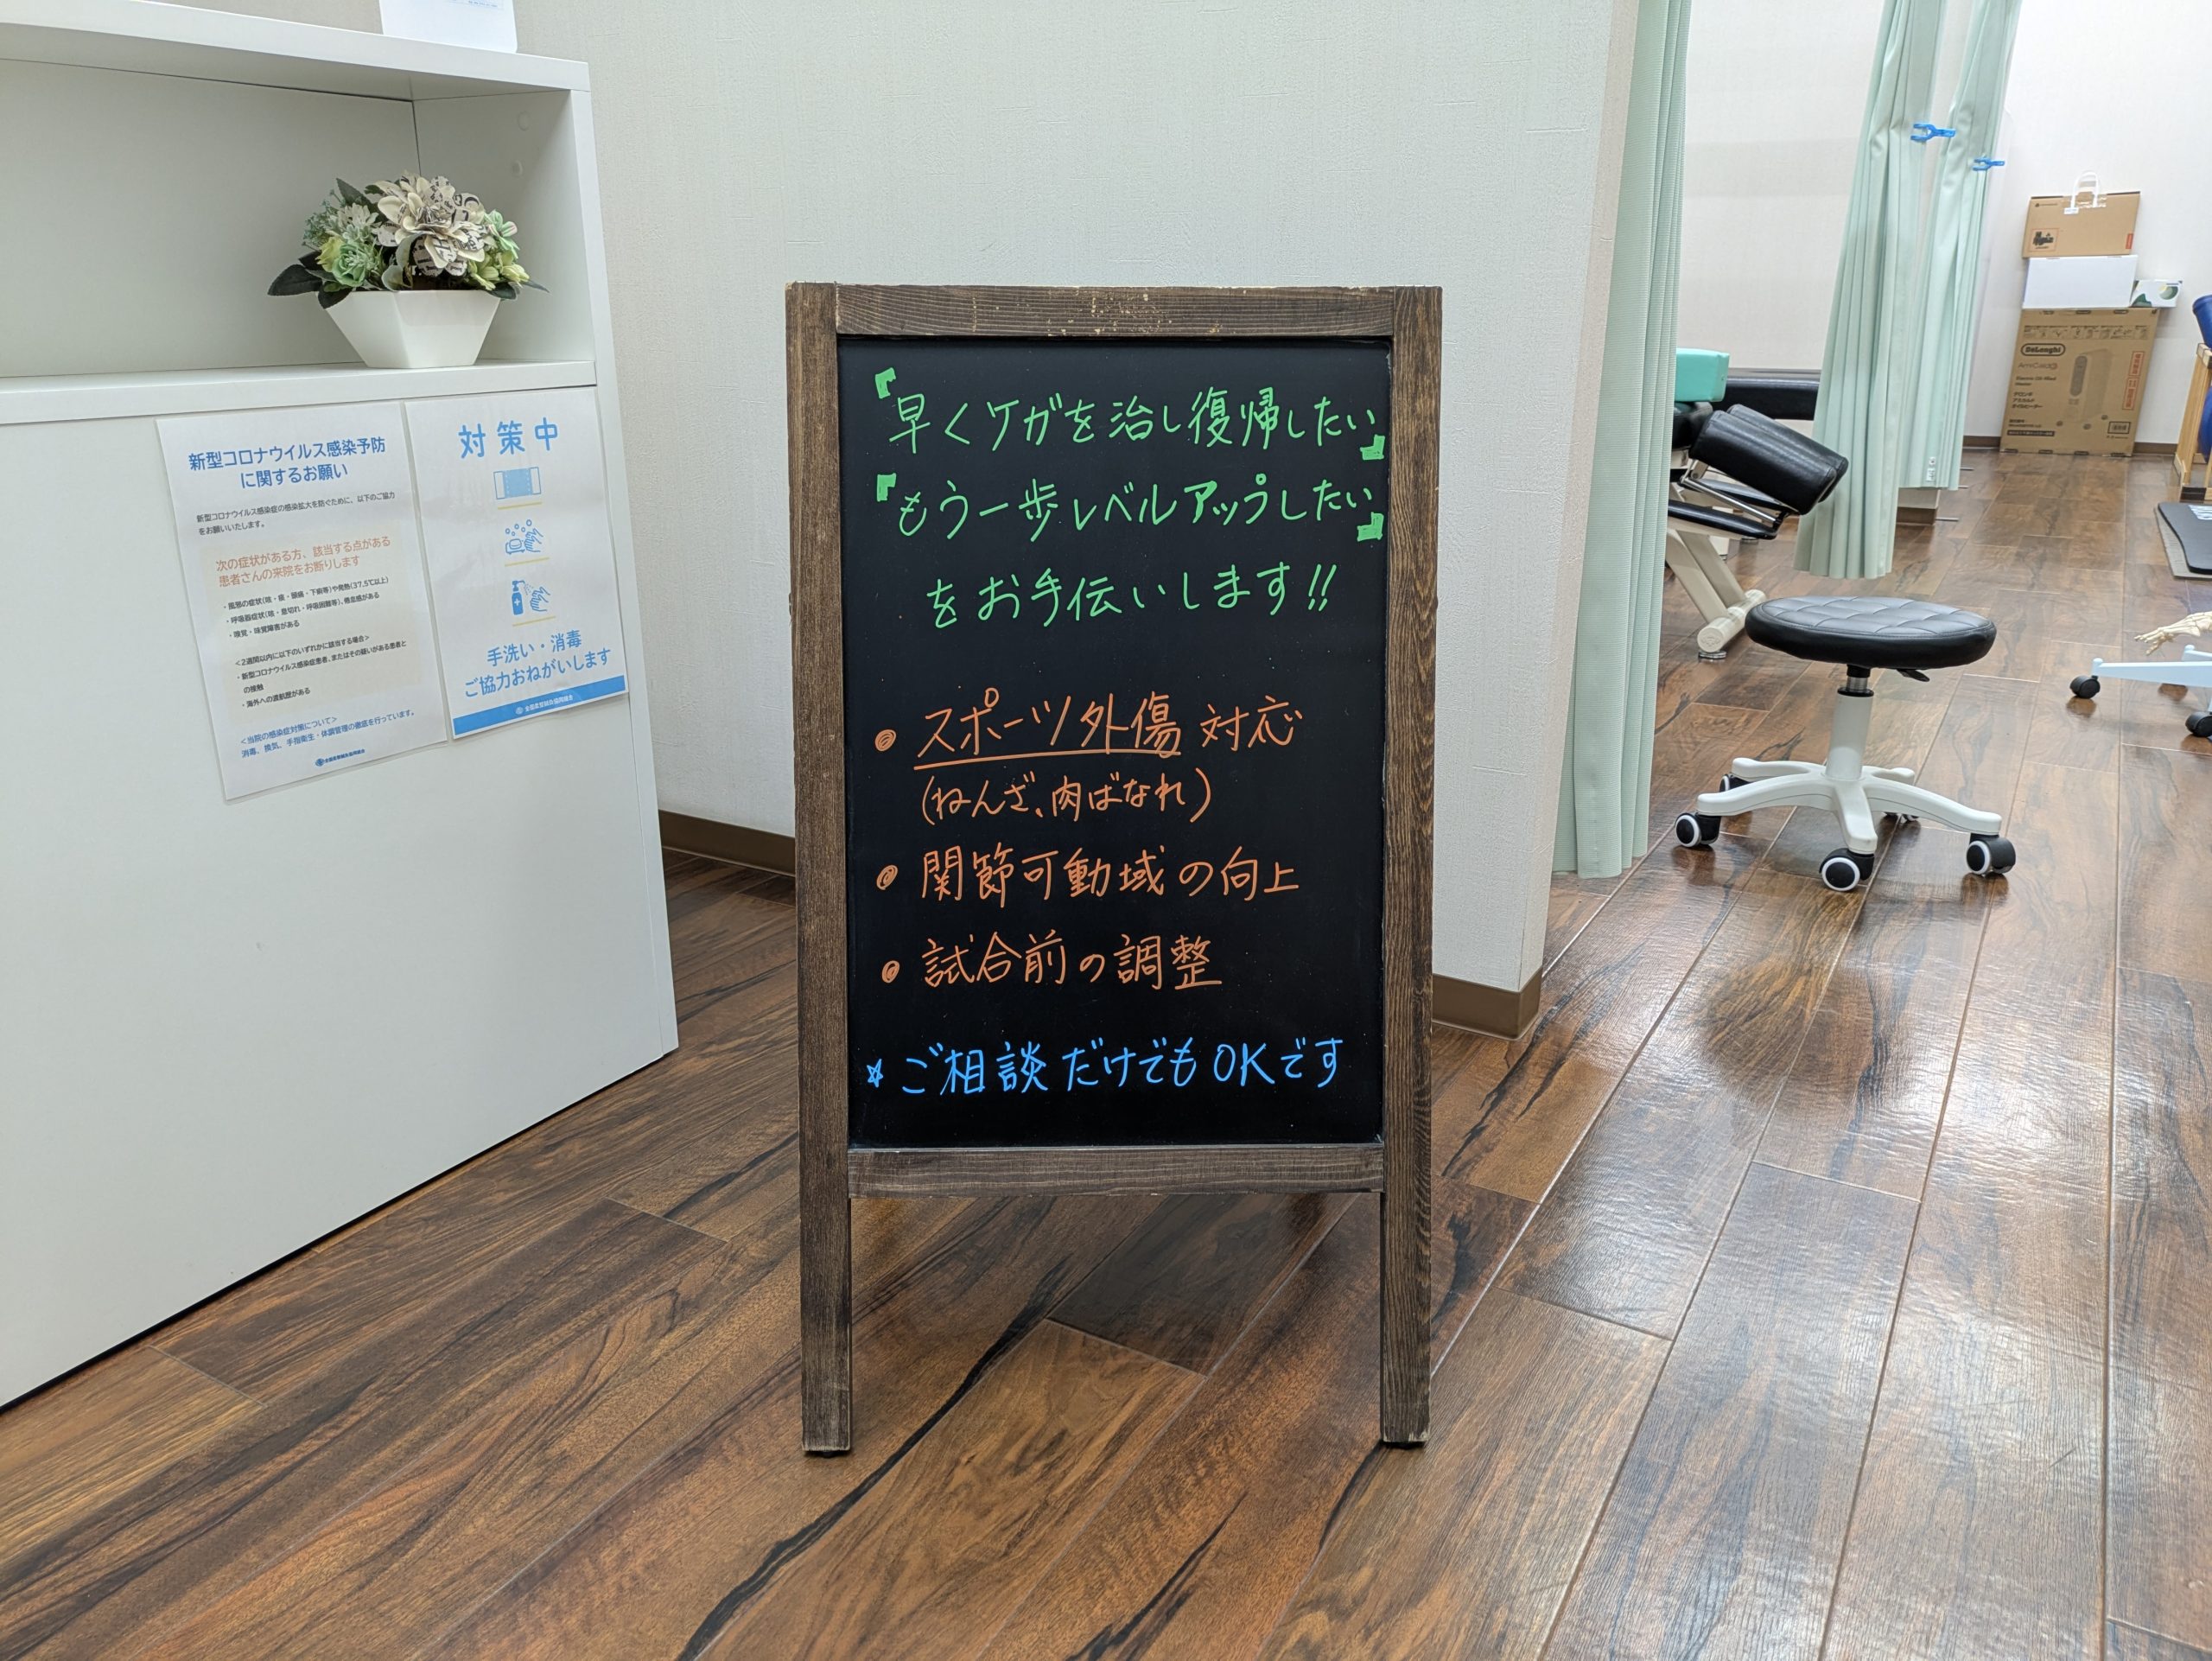 新型コロナウイルス感染予防
に関するお願い
新型コロナウイルス感染症の感染拡大を防ぐために、以下のご協力
をお願いいたします。
次の症状がある方、該当する点がある
患者さんの来院をお断りします
・風邪の症状(咳・痰・頭痛・下痢等)や発熱(37.5℃以上)
・呼吸器症状(咳・息切れ・呼吸困難等)、倦怠感がある
・嗅覚・味覚障害がある
<2週間以内に以下のいずれかに該当する場合>
・新型コロナウイルス感染症患者、またはその疑いがある患者と
の接触
・海外への渡航歴がある
<当院の感染症対策について>
消毒、換気、手指衛生・体調管理の徹底を行っています。
対策中
手洗い・消毒
ご協力おねがいします
「早くケガを治し復帰したい」
「もう一歩レベルアップしたい」
をお手伝いします!!
● スポーツ外傷 対応
(ねんざ、肉ばなれ)
● 関節可動域の向上
● 試合前の調整
☆ ご相談だけでもOKです
DeLonghi